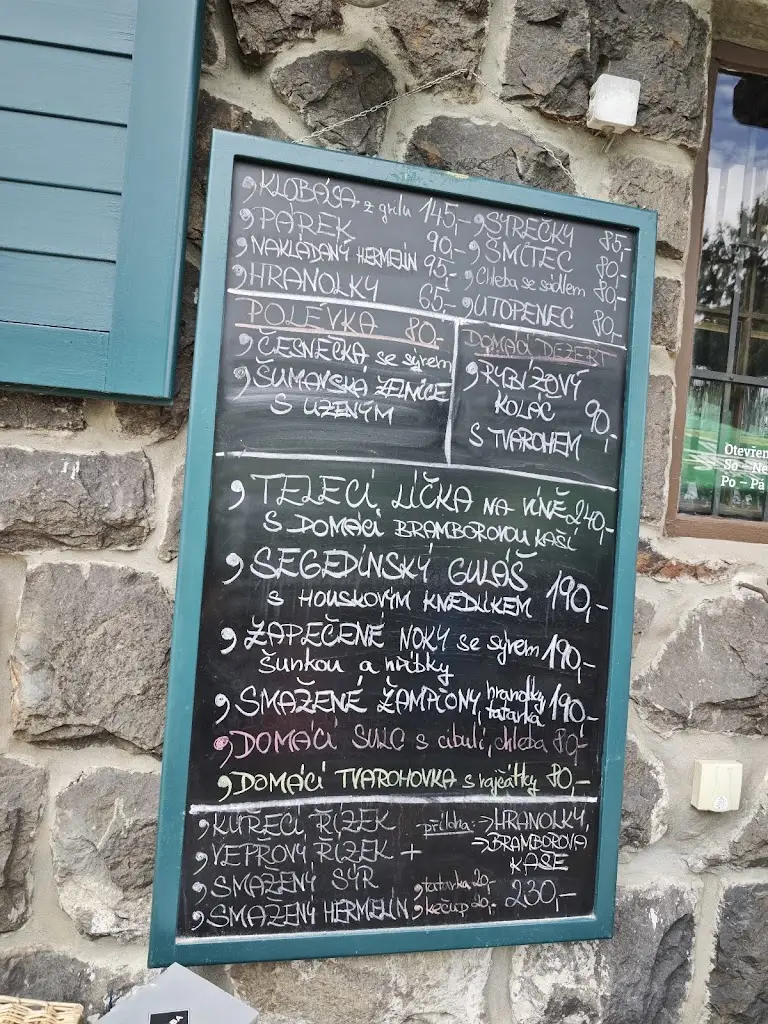 KLOBÁSA z grilu 145,-
PÁREK 90,-
NAKLÁDANÝ HERMELÍN 95,-
HRANOLKY 65,-
SYREČKY 85,-
ŠMITEC 80,-
Chleba se sádlem 80,-
UTOPENEC 80,-
POLÉVKA 80,-
ČESNEČKA se sýrem
ŠUMAVSKÁ ZELNICE
S UZENÝM
DOMÁCÍ DEZERT
RYBÍZOVÝ
KOLÁČ 90,-
S TVAROHEM
TELECÍ LÍČKA NA VÍNĚ 240,-
S DOMÁCÍ BRAMBOROVOU KAŠÍ
SEGEDÍNSKÝ GULÁŠ
S HOUSKOVÝM KNEDLÍKEM 190,-
ZAPEČENÉ NOKY se sýrem 190,-
šunkou a hříbky
SMAŽENÉ ŽAMPIONY, hranolky, tatarka 190,-
DOMÁCÍ SULC s cibulí, chleba 80,-
DOMÁCÍ TVAROHOVKA s rajčátky 80,-
KUŘECÍ ŘÍZEK
VEPŘOVÝ ŘÍZEK +
SMAŽENÝ SÝR
SMAŽENÝ HERMELÍN
příloha: → HRANOLKY,
→ BRAMBOROVÁ
KAŠE
tatarka 20,-
kečup 20,-
230,-
Otevřen
So – Ne
Po – Pá